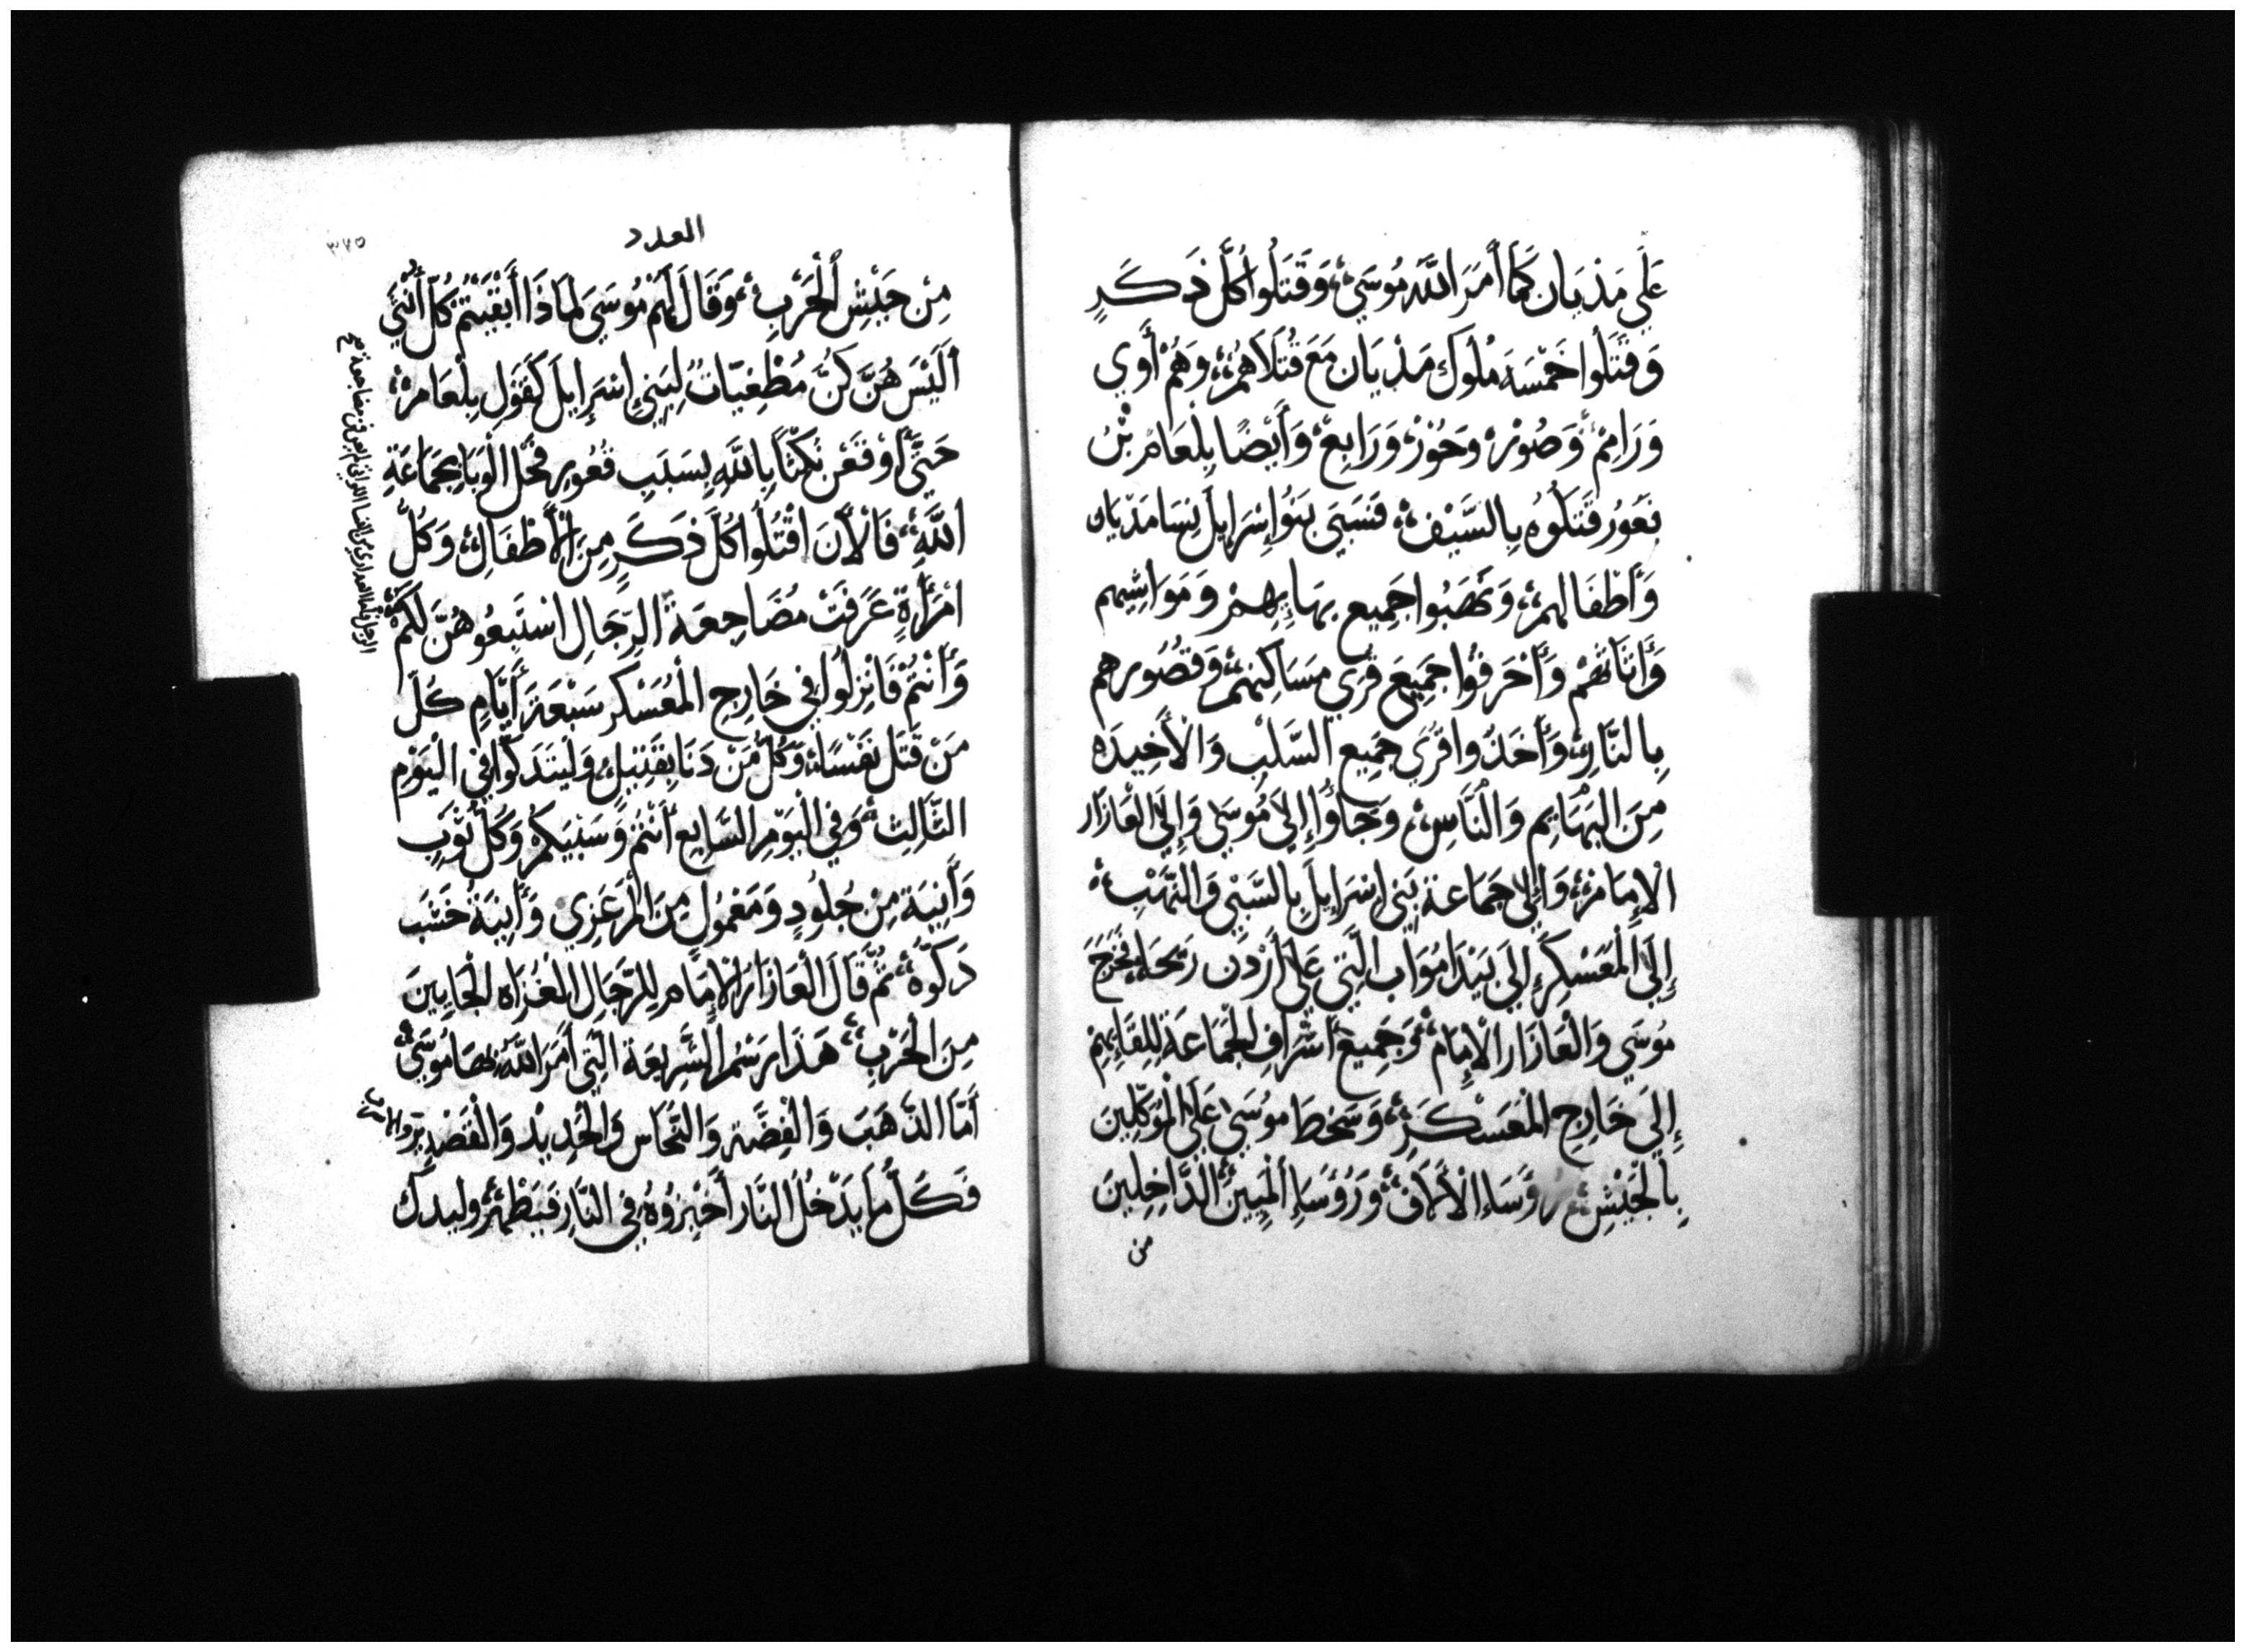 عَلَي مَذْيَان كَمَا أَمَرَ اللَّهُ مُوسَيٰ، وَقَتَلُوا كُلَّ ذَكَرٍ
وَقَتَلُوا خَمْسَة مُلُوك مَذْيَان مَعَ قُتَلَاهُمْ، وَهُمْ أَوِي
وَرَاقِمْ، وَصُوْرْ، وَحُوْرْ، وَرَابِعْ، وَأَيْضًا بِلْعَامْ بْنُ
بَعُورُ قَتَلُوهُ بِالسَّيْف، فَسَبَيَ بَنُوا إِسْرَايلَ نِسَا مَذْيَان
وَأَطْفَالهِمْ، وَنَهَبُوا جَمِيع بهَايِمِهِمْ وَمَوَاشِيهم
وَأَنَاثهُمْ وَأَحْرَقُوا جَمِيعَ قُرَي مَسَاكِنِهِمْ، وَقُصُورهم
بِالنَّارِ، وَأَخَذُوا قُرَي جَمِيع السَّلَبْ وَالْأَخِيدَه
مِنَ البَهَايِم وَالْنَّاسِ، وَجَاؤُا إِلَي مُوسَي وَإِلَي الْعَازَار
الْإِمَامْ، وَإِلَي جَمَاعة بَنِي إِسْرَايلَ بِالسَّبْي وَالنَّهْبِ،
إِلَي الْمُعَسْكِرِ إِلَي بَيْدَا مُوَاب الَّتِي عَلَي أُرْدُن رِيحَا، فَخَرَجَ
مُوسَي وَالْعَازَار الْإِمَام، وَجَمِيعَ أَشْرَافِ الْجَمَاعَة لِلِقَايِهِمْ
إِلَيَ خَارِجِ الْمُعَسْكَرِ، وَسَخطَ مُوسَي عَلَي الْمُوَكِّلِينَ
بِالْجَيْشِ، رُوَسَاءِ الْأَلَاف، وَرُوَسَاءِ الْمِيِينَ، الدَّاخِلِينَ
من
العدد
٣٧٥
مِنْ جَيْشِ الْحَرْبِ، وَقَالَ لَهُمْ مُوسَيَ لِمَاذَا أَبْقَيْتُمْ كُلّ أُنْثَي
أَلَيْسَ هُنَّ كنَّ مُطْغِيَّاتٌ لِبَنِي إِسْرَايلَ كَقَوْلِ بِلْعَامَ،
حَتَّي أَوْقَعْنَ نَكْثًا بِاللَّهِ بِسَبَبِ فَعُورِ فَحَلَّ الْوَبَا بِجَمَاعَةِ
اللَّهِ، فَالْأَنَ اقْتُلُوا كُلَّ ذَكَرٍ مِنَ الْأَطْفَالِ، وَكُلُّ
امْرَأَةٍ عَرَفَتْ مُضَاجِعَةَ الرِّجَالِ اسْتَبِقُوهُنَّ لَكُمْ،
وَأَنْتُمْ فَانْزِلُوا فِي خَارِجِ الْمُعَسْكر سَبْعَةَ أَيَّامٍ كُلّ
مَنْ قَتَلَ نَفْسًا، وَكُلُّ مَنْ دَنَا بِقَتِيلٍ، وَليَتَدَكَّوا فِي الْيَوْمِ
الثَّالِث، وَفِي الْيَوْمِ السَّابِع أَنْتُمْ وَسَبْيَكمْ، وَكُلّ ثَوْبٍ
وَأَنِيَة مِنْ جُلُودٍ وَمَعْمُولٍ مِنَ الْمَرْعَزِي وَأَنِيَةُ خَشَب
دَكوّهْ، ثُمَّ قَالَ الْعَازَارُ الْإِمَام لِلرِّجَالِ الْغُزَاه الْجَايِينَ
مِنَ الْحَرْبِ، هَذَا رَسْمُ الشَّرِيعَة الَّتِي أَمَرَ اللَّهُ بِهَا مُوسَيٰ،
أَمَّا الذَّهَبَ وَالْفِضَّة وَالنُّحَاس وَالْحَدِيدْ وَالْقَصْدِير وَالأسرب
فَكلّ مَا يَدْخُلُ النَّار أَجِيزُوهُ فِي النَّار فَيَطْهُرُ، وليدك